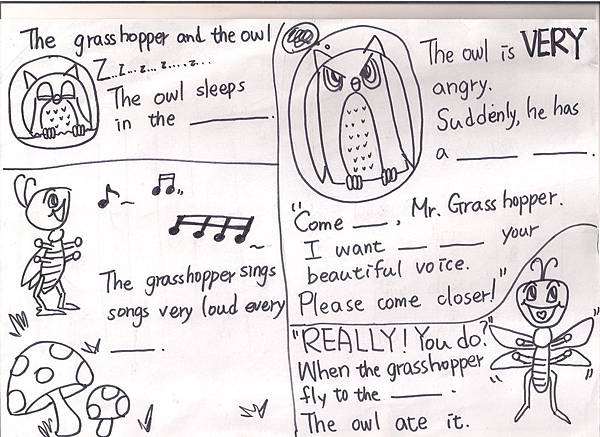 The grasshopper and the owl
Z..z...z...z...z...
The owl sleeps
in the ______.
The grasshopper sings
songs very loud every
____.
The owl is VERY
angry.
Suddenly, he has
a ____ ____.
"Come ___, Mr. Grasshopper.
I want ___ ___ your
beautiful voice.
Please come closer!"
"REALLY! You do?"
When the grasshopper
fly to the ____.
The owl ate it.